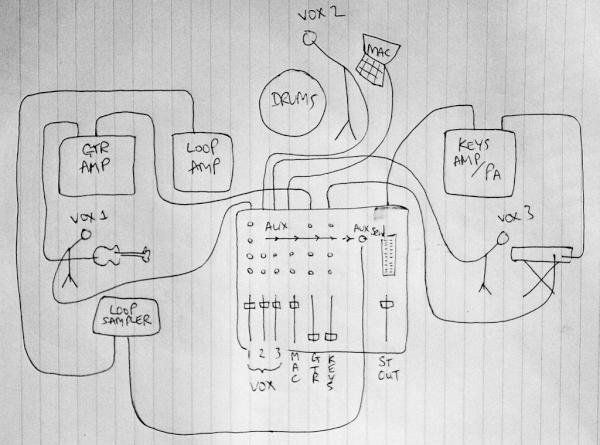 VOX 2
MAC
DRUMS
GTR
AMP
LOOP
AMP
KEYS
AMP/PA
VOX 1
VOX 3
AUX
AUX Send
LOOP
SAMPLER
1 2 3
VOX
MAC
GTR
KEYS
ST
OUT